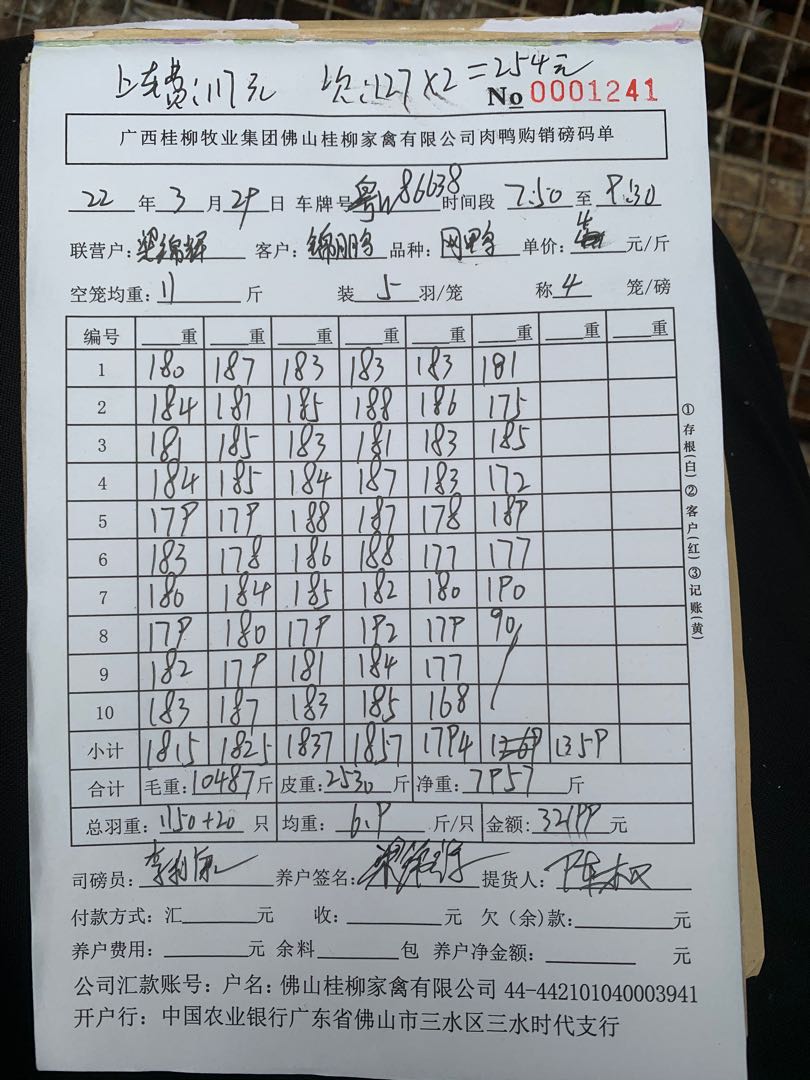 上车费:117元 次:127×2=254元
No 0001241
广西桂柳牧业集团佛山桂柳家禽有限公司肉鸭购销磅码单
22年3月29日 车牌号粤W86638时间段7:50至9:30
联营户:梁锦辉 客户:锦鹏 品种:网鸭 单价:元/斤
空笼均重:11斤 装5羽/笼 称4笼/磅
编号 重 重 重 重 重 重 重 重
1 180 187 183 183 183 181
2 184 181 185 188 186 175
3 181 185 183 181 183 185
4 184 185 184 187 183 172
5 179 179 188 187 178 189
6 183 178 186 188 177 177
7 180 184 185 182 180 190
8 179 180 179 192 179 90
9 182 179 181 184 177
10 183 187 183 185 168
小计 1815 1825 1837 1857 1794 1359
合计 毛重:10487斤 皮重:2530斤 净重:7957斤
总羽重:1150+20只 均重:6.9斤/只 金额:32199元
司磅员:李利 养户签名:梁锦辉 提货人:陈权
付款方式:汇元 收:元 欠(余)款:元
养户费用:元 余料包 养户净金额:元
公司汇款账号:户名:佛山桂柳家禽有限公司 44-442101040003941
开户行:中国农业银行广东省佛山市三水区三水时代支行
①存根(白)②客户(红)③记账(黄)